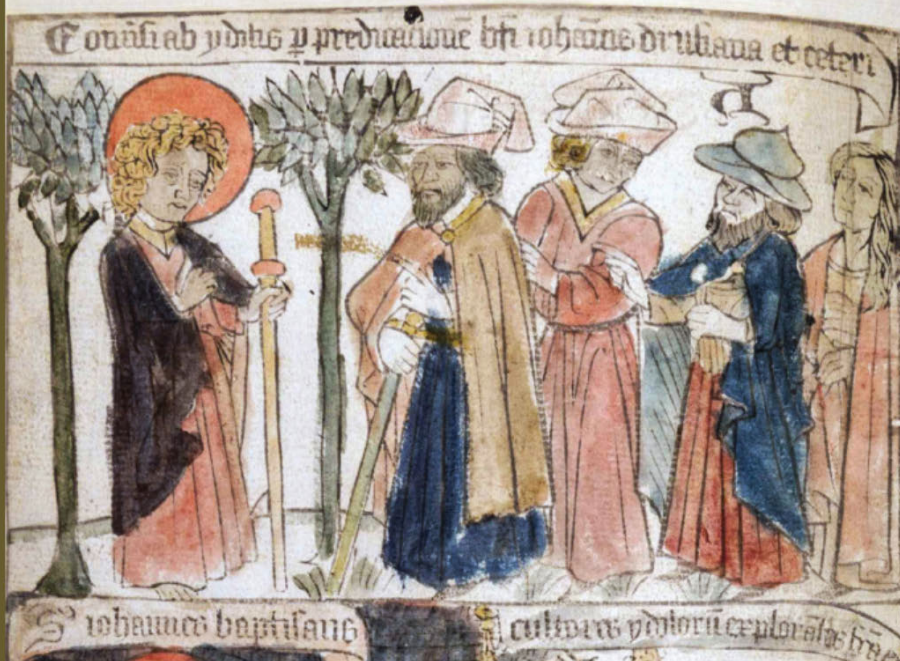 Conu͛si ab ydolis ꝑ predicacionē bt̄i ioħānis drusiana et ceteri
S iohannes baptisans
cultores ydolorū explorātes